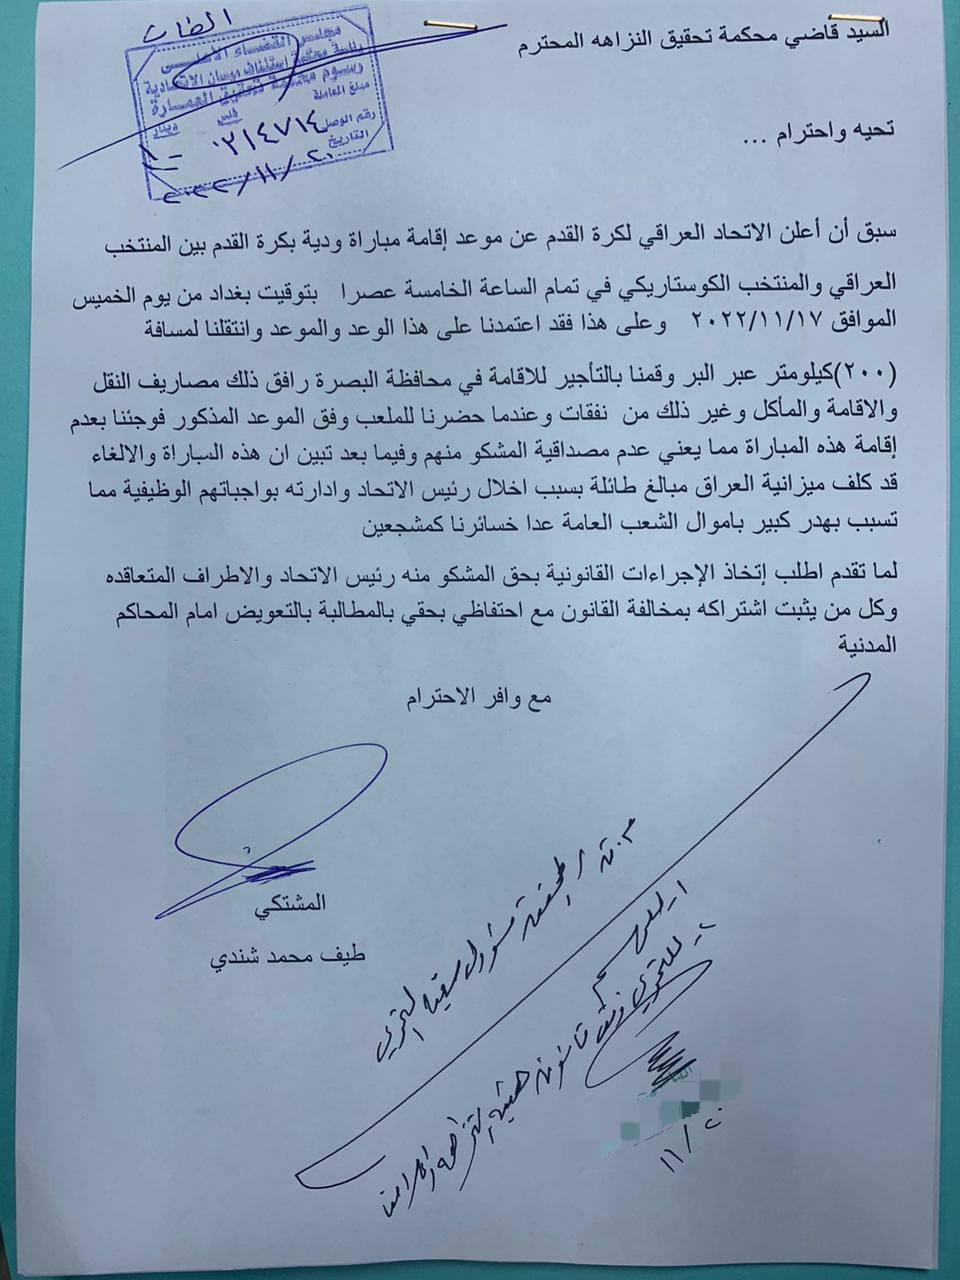 السيد قاضي محكمة تحقيق النزاهه المحترم
مجلس القضاء الاعلى
رئاسة محكمة استئناف ميسان الاتحادية
رسوم محكمة تحقيق العمارة
مبلغ المعاملة
فلس دينار
رقم الوصل ٠٢١٤٧١٤
التاريخ ٢٠٢٢/١١/٢٠
تحيه واحترام ...
سبق أن أعلن الاتحاد العراقي لكرة القدم عن موعد إقامة مباراة ودية بكرة القدم بين المنتخب
العراقي والمنتخب الكوستاريكي في تمام الساعة الخامسة عصرا بتوقيت بغداد من يوم الخميس
الموافق ٢٠٢٢/١١/١٧ وعلى هذا فقد اعتمدنا على هذا الوعد والموعد وانتقلنا لمسافة
(٢٠٠)كيلومتر عبر البر وقمنا بالتأجير للاقامة في محافظة البصرة رافق ذلك مصاريف النقل
والاقامة والمأكل وغير ذلك من نفقات وعندما حضرنا للملعب وفق الموعد المذكور فوجئنا بعدم
إقامة هذه المباراة مما يعني عدم مصداقية المشكو منهم وفيما بعد تبين ان هذه المباراة والالغاء
قد كلف ميزانية العراق مبالغ طائلة بسبب اخلال رئيس الاتحاد وادارته بواجباتهم الوظيفية مما
تسبب بهدر كبير باموال الشعب العامة عدا خسائرنا كمشجعين
لما تقدم اطلب إتخاذ الإجراءات القانونية بحق المشكو منه رئيس الاتحاد والاطراف المتعاقده
وكل من يثبت اشتراكه بمخالفة القانون مع احتفاظي بحقي بالمطالبة بالتعويض امام المحاكم
المدنية
مع وافر الاحترام
المشتكي
طيف محمد شندي
١١/٢٠